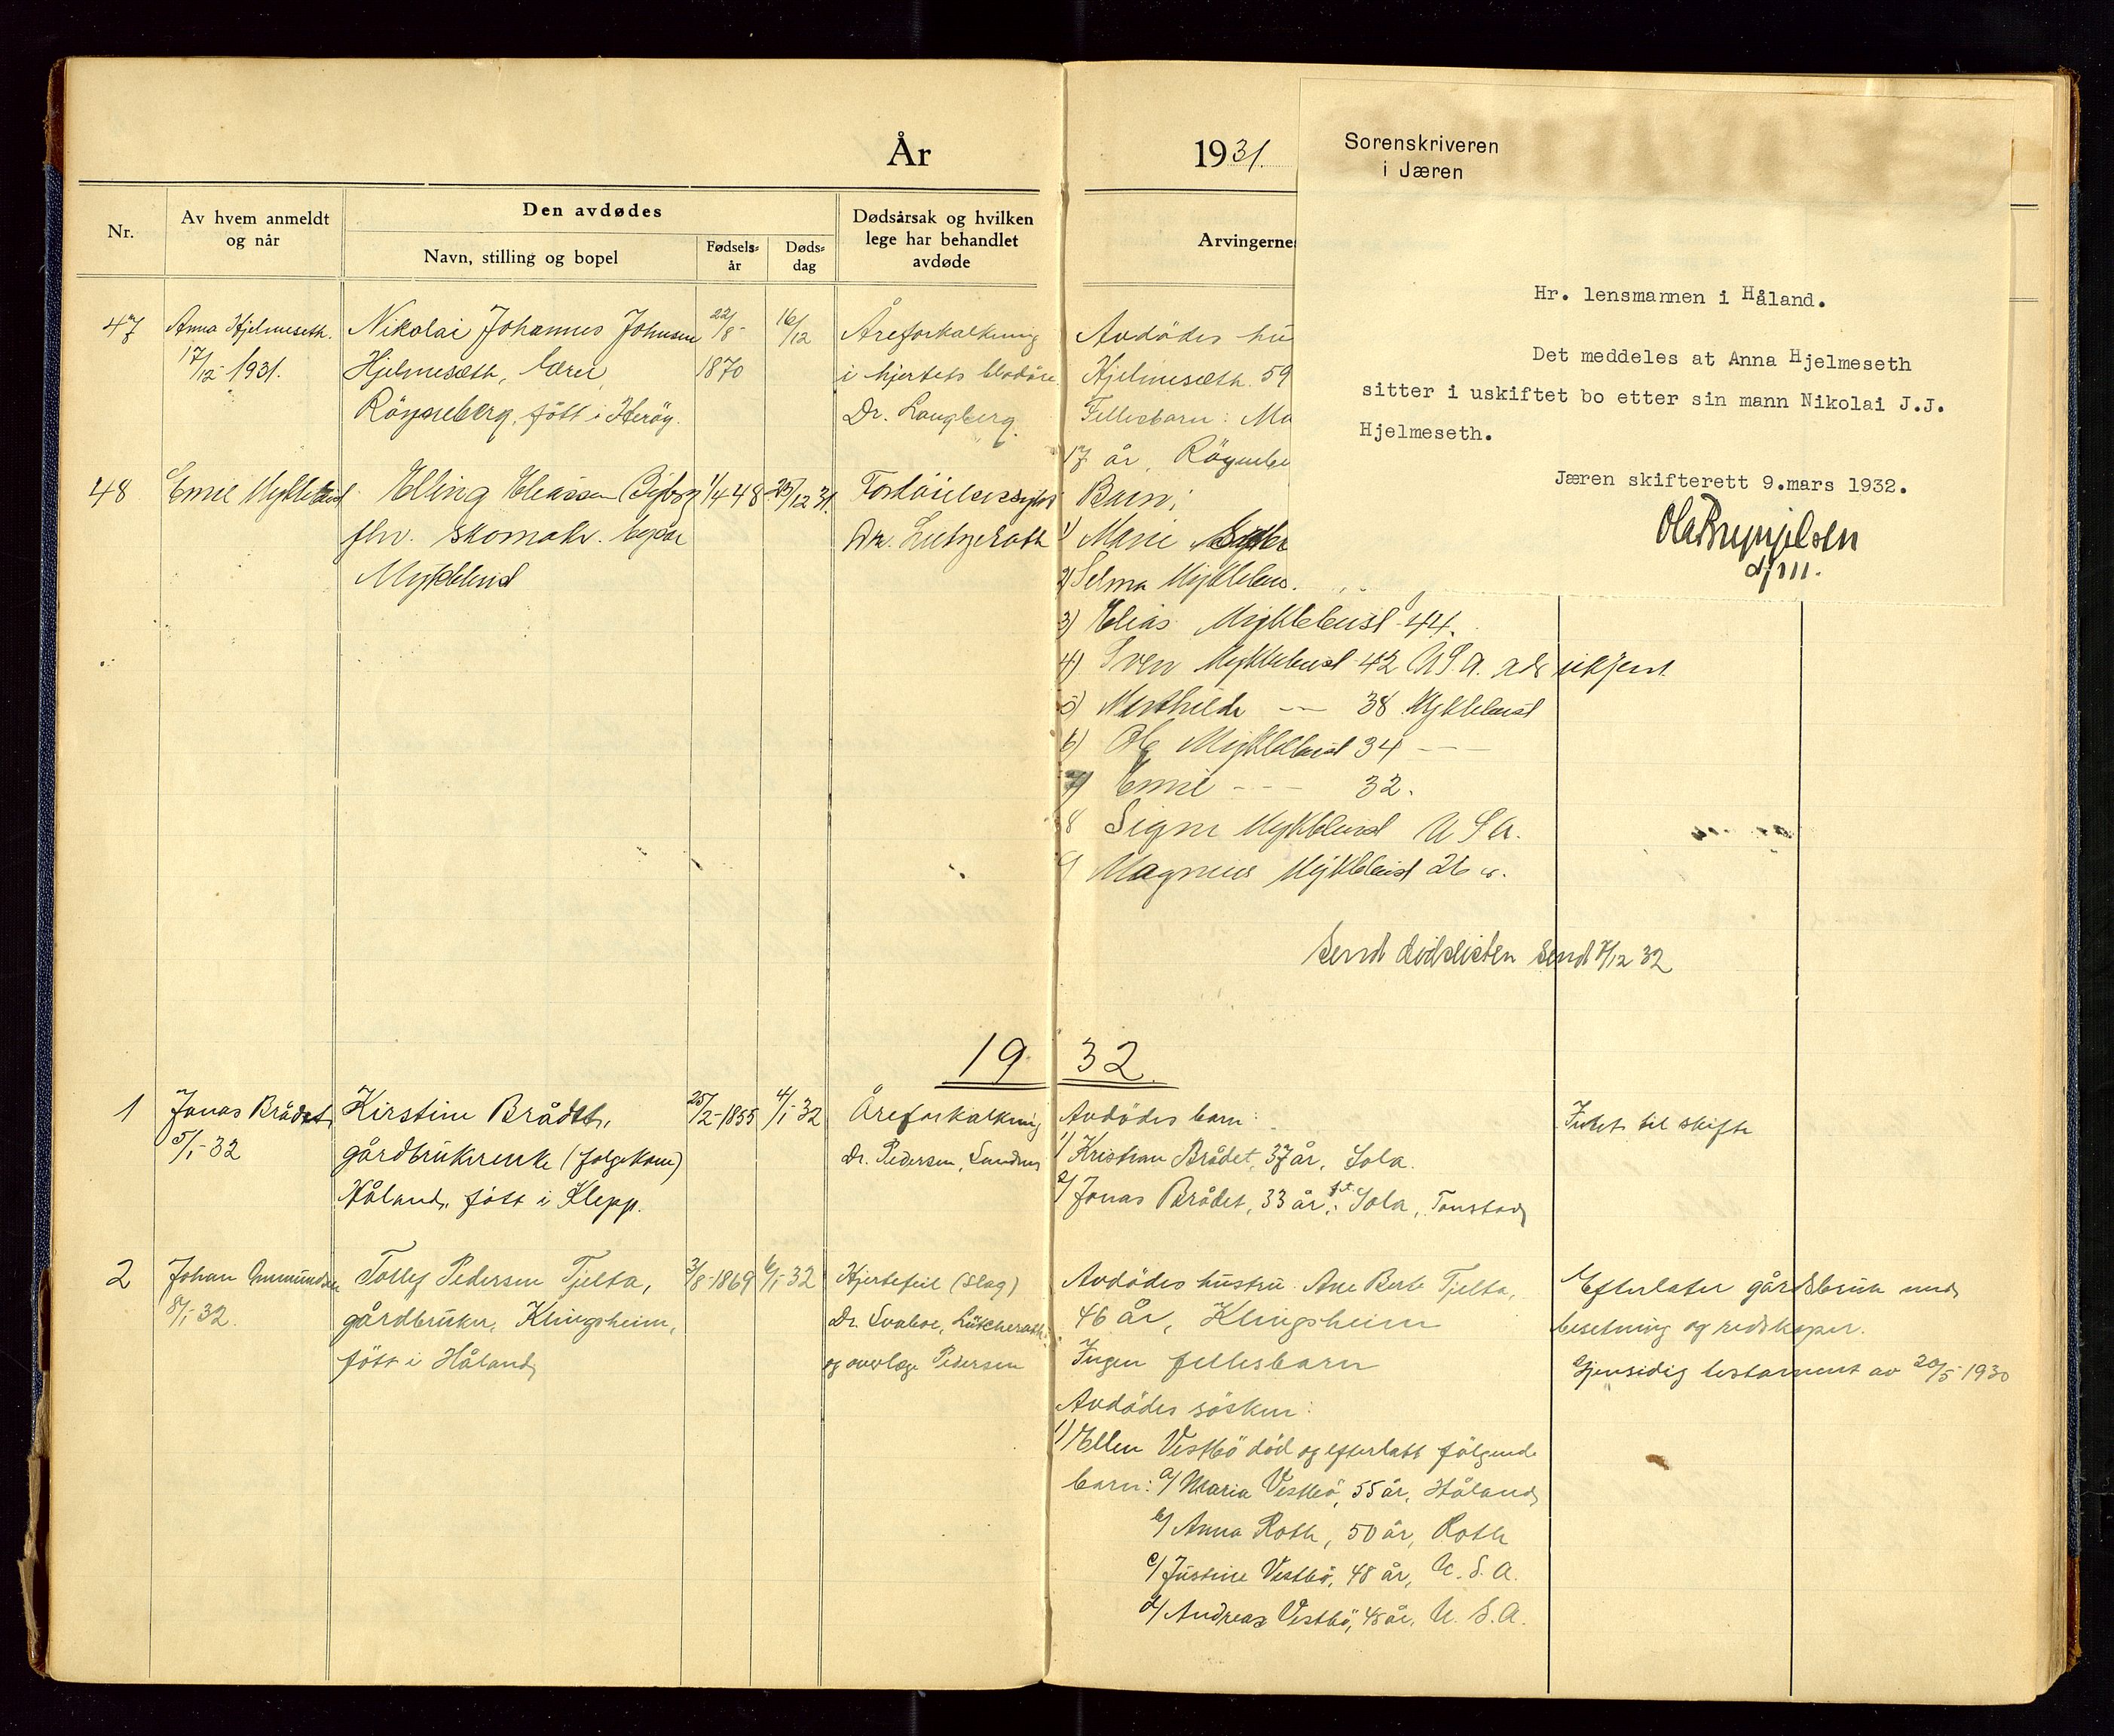 År 1931.
Nr.
Av hvem anmeldt
og når
Den avdødes
Navn, stilling og bopel
Fødsels-
år
Døds-
dag
Dødsårsak og hvilken
lege har behandlet
avdøde
Arvingernes
47
Anna Hjelmeseth.
17/12-1931.
Nikolai Johannes Johnsen
Hjelmeseth, lærer,
Röyneberg, født i Heröy.
22/8-
1870
16/12
Åreforkalkning
i hjertets blodåre.
Dr. Langberg.
Avdödes hu
Hjelmeseth. 59
Fellesbarn: Ma
17 år, Röynebe
48
Emil Myklebust
Elling Eliassen
fhv. skomaker
Myklebust
1/4 48
25/12 31.
Barn:
1) Marie
2) Selma Myklebus.
3) Elias Myklebust 44.
4) Sven Myklebust 42 U.S.A. adr ukjent
5) Mathilde -- 38 Myklebust
6) Ole Myklebust 34 ---
7) Emil --- 32.
8 Signe Myklebust U S A.
9 Magnus Myklebust 26
Send dødslisten Send 7/12 32
Sorenskriveren
i Jæren
Hr. lensmannen i Håland.
Det meddeles at Anna Hjelmeseth
sitter i uskiftet bo etter sin mann Nikolai J.J.
Hjelmeseth.
Jæren skifterett 9.mars 1932.
19 32.
1
Jonas Brådet
5/1-32
Kirstine Brådet,
gårdbrukerenke (folgekone)
Håland, født i Klepp.
25/2-1855
4/1-32
Åreforkalkning
Dr. Pedersen, Sandnes
Avdödes barn:
1/ Kristian Brådet, 37 år, Sola.
2/ Jonas Brådet, 33 år, Sola, Tonstad
Intet til skifte
2
Johan Ommundsen
8/1-32.
Tollef Pedersen Tjelta,
gårdbruker, Klingsheim,
født i Håland
3/8-1869
6/1-32
Hjertefeil (slag)
Dr. Svaboe, Lütcherath
og overlæge Pedersen
Avdödes hustru Ane Berte Tjelta,
46 år, Klingsheim
Ingen fellesbarn
Avdödes sösken:
1) Ellen Vestbö död og efterlatt fölgende
barn: a/ Maria Vestbö, 55 år, Håland
b/ Anna Roth, 50 år, Roth
c/ Justine Vestbö, 48 år, U. S. A.
d/ Andreas Vestbö, 45 år, U. S. A.
Efterlater gårdsbruk med
besetning og redskaper.
Gjensidig testament av 20/5-1930